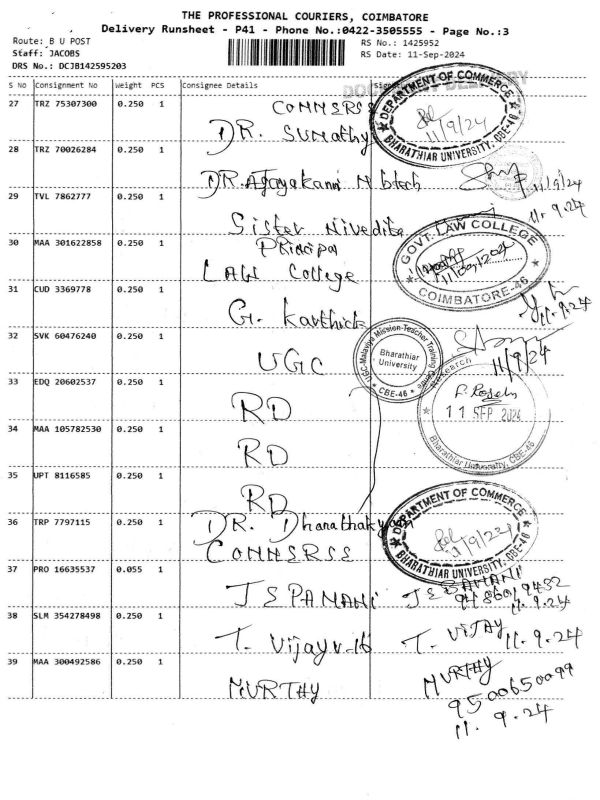 THE PROFESSIONAL COURIERS, COIMBATORE
Delivery Runsheet - P41 - Phone No.:0422-3505555 - Page No.:3
Route: B U POST
RS No.: 1425952
Staff: JACOBS
RS Date: 11-Sep-2024
DRS No.: DCJB142595203
S No Consignment No Weight PCS Consignee Details
27 TRZ 75307300 0.250 1 COMMSRSS
DR. Sumathy
DEPARTMENT OF COMMERCE
11/9/24
BHARATHIAR UNIVERSITY, CBE-46
28 TRZ 70026284 0.250 1
DR. Ajayakann M btech
11/9/24
29 TVL 7862777 0.250 1
Sister Nivedita
11.9.24
30 MAA 301622858 0.250 1 Principal
LAW College
GOVT. LAW COLLEGE
COIMBATORE-46
31 CUD 3369778 0.250 1
G. Karthick
11.9.24
32 SVK 60476240 0.250 1
UGC
UGC-Malaviya Mission-Teacher Training Centre
Bharathiar
University
CBE-46
11/9/24
33 EDQ 20602537 0.250 1
RD
Research
11 SEP 2024
Bharathiar University, CBE-46
34 MAA 105782530 0.250 1
RD
35 UPT 8116585 0.250 1
RD
36 TRP 7797115 0.250 1 DR.
COMMSRSS
DEPARTMENT OF COMMERCE
11/9/24
BHARATHIAR UNIVERSITY, CBE-46
37 PRO 16635537 0.055 1
J S PAMANI
11.9.24
38 SLM 354278498 0.250 1
T.
T. VIJAY 11.9.24
39 MAA 300492586 0.250 1
MURTHY
MURTHY
9500650099
11.9.24